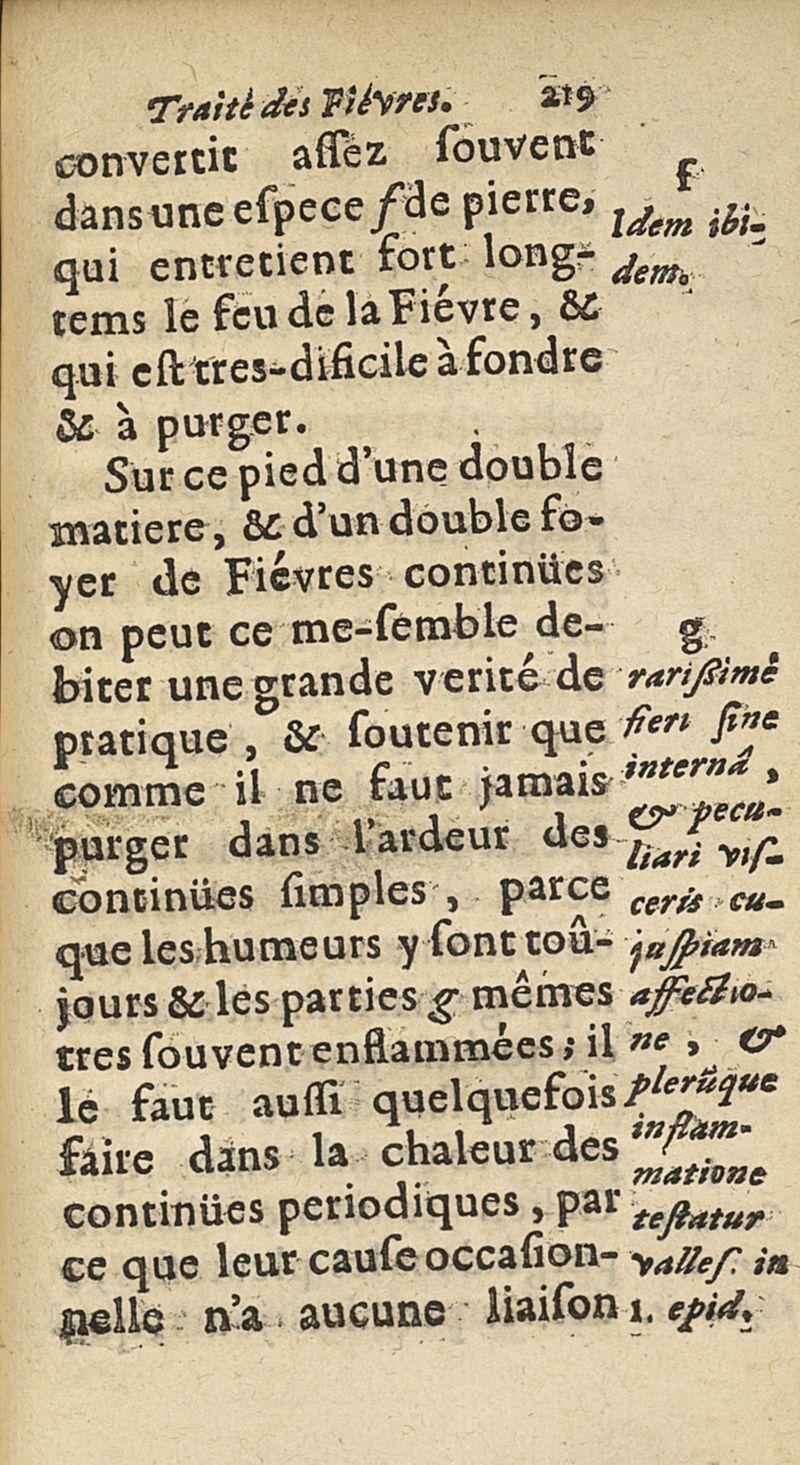 Traité des Fiévres. 219
convertit aſſez ſouvent
dans une eſpece f de pierre,
qui entretient fort long-
tems le feu de la Fiévre, &
qui eſt tres-dificile à fondre
& à purger.
Sur ce pied d'une double
matiere, & d'un double fo-
yer de Fiévres continües
on peut ce me-ſemble de-
biter une grande verité de
pratique, & ſoutenir que
comme il ne faut jamais
purger dans l'ardeur des
continües ſimples, parce
que les humeurs y ſont toû-
jours & les parties g mêmes
tres ſouvent enflammées; il
le faut auſſi quelquefois
faire dans la chaleur des
continües periodiques, par
ce que leur cauſe occaſion-
nelle n'a aucune liaiſon
f
Idem ibi-
dem.
g
rariſſimê
fieri ſine
internâ,
& pecu-
liari viſ-
ceris cu-
juſpiam
affectio-
ne, &
plerûque
inflam-
matione
teſtatur
valleſ. in
1. epid.